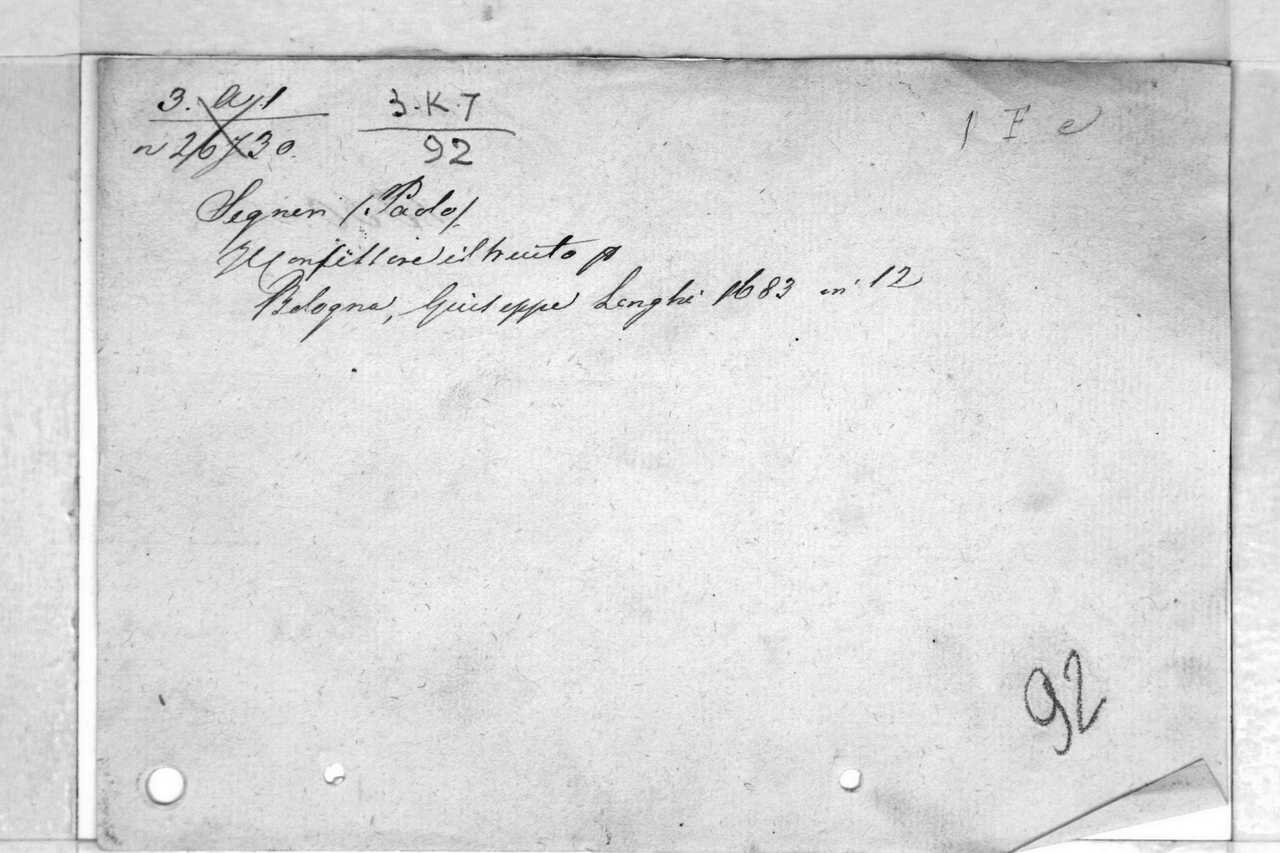 3. Ay 1
n 26730
3.K.7
92
1 F e
Segneri (Paolo)
Il Confessore istruito
Bologna, Giuseppe Longhi 1683 in 12
92